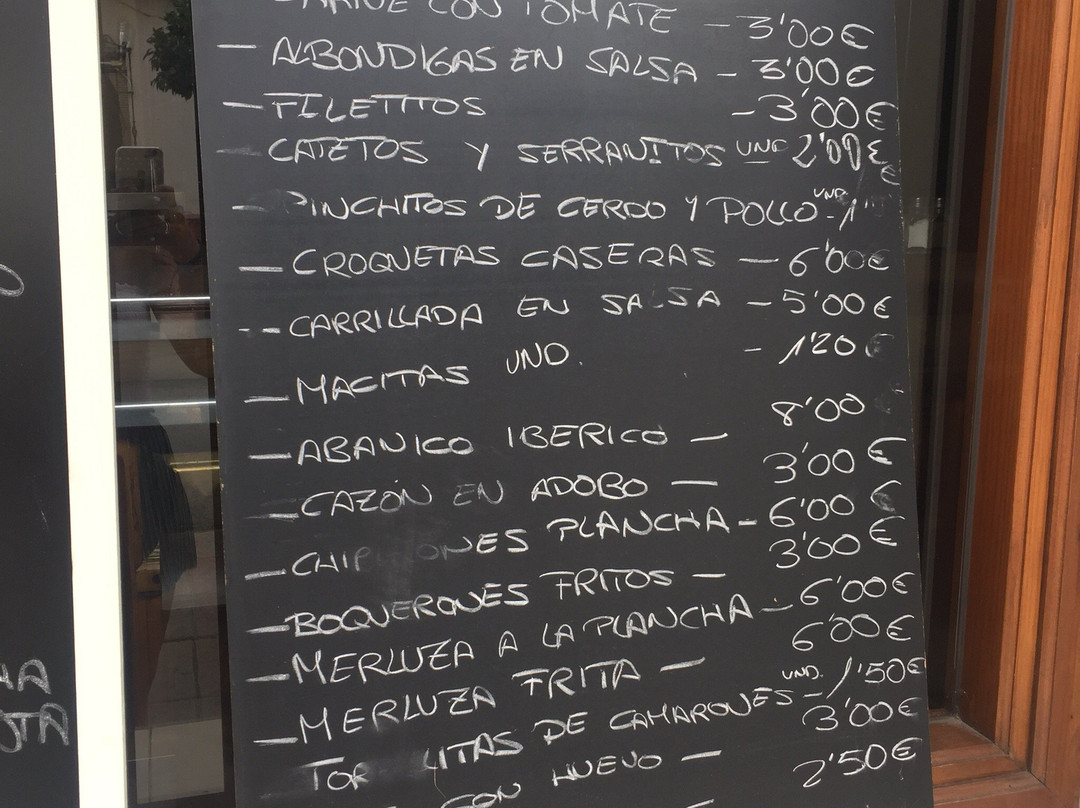 — CARNE CON TOMATE — 3'00€
— ALBONDIGAS EN SALSA — 3'00€
— FILETITOS — 3'00€
— CATETOS Y SERRANITOS UNO 2'00€
— PINCHITOS DE CERDO Y POLLO UND. - 1
— CROQUETAS CASERAS — 6'00€
— CARRILLADA EN SALSA — 5'00€
— MACITAS UNO. — 1'20€
— ABANICO IBERICO — 8'00
— CAZÓN EN ADOBO — 3'00€
— CHIP ONES PLANCHA — 6'00€
— BOQUERONES FRITOS — 3'00€
— MERLUZA A LA PLANCHA — 6'00€
— MERLUZA FRITA — 6'00€
— TOR LITAS DE CAMARONES UND. - 1'50€
CON HUEVO — 3'00€
2'50€